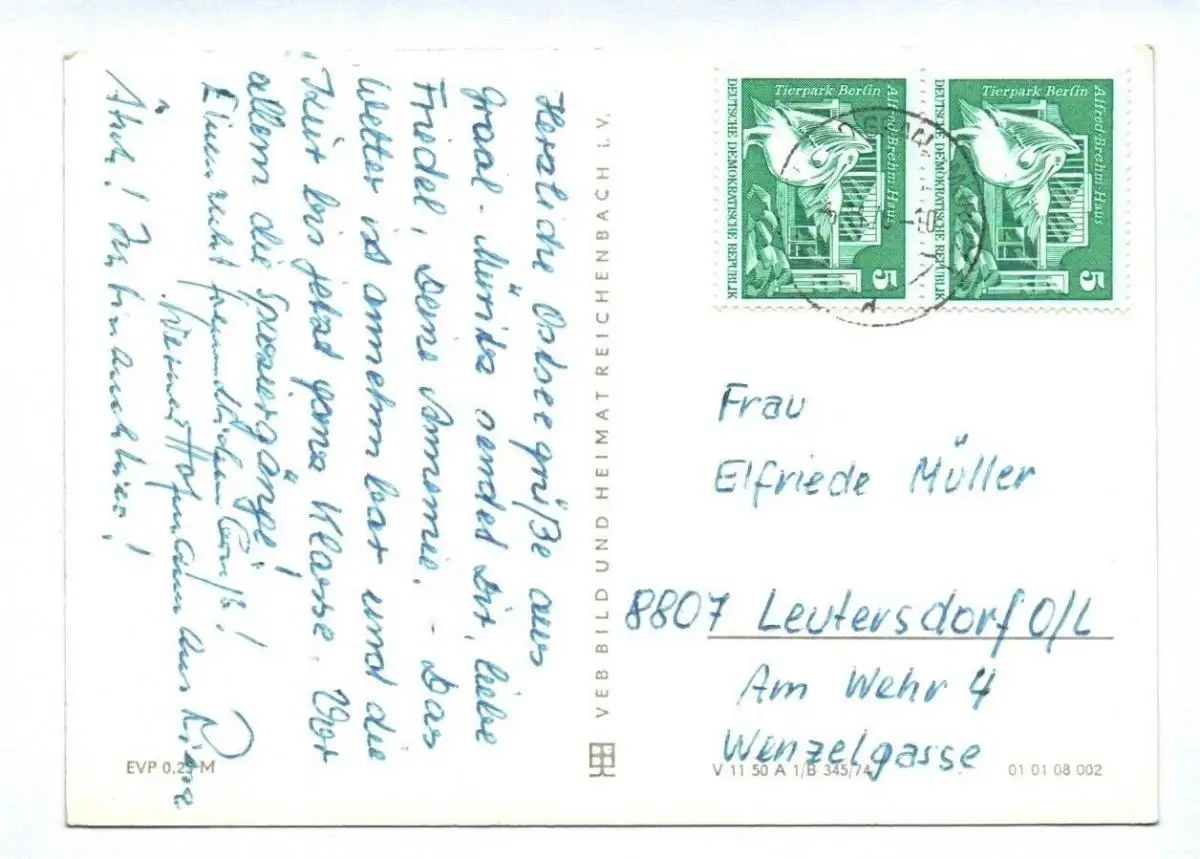 Herzliche Ostseegrüße aus
Graal-Müritz sendet Dir, liebe
Friedel, Deine Annemie. - Das
Wetter ist annehmbar und die
Kur bis jetzt ganz Klasse. Vor
allem die Spaziergänge!
Einen recht freundlichen Gruß!
Werner Hofmann aus
Ätsch! Ich bin auch hier!
EVP 0,25 M
VEB BILD UND HEIMAT REICHENBACH I. V.
Tierpark Berlin
Alfred-Brehm-Haus
DEUTSCHE DEMOKRATISCHE REPUBLIK
5
Tierpark Berlin
Alfred-Brehm-Haus
DEUTSCHE DEMOKRATISCHE REPUBLIK
5
Frau
Elfriede Müller
8807 Leutersdorf O/L
Am Wehr 4
Wenzelgasse
V 11 50 A 1/B 345/74
01 01 08 002